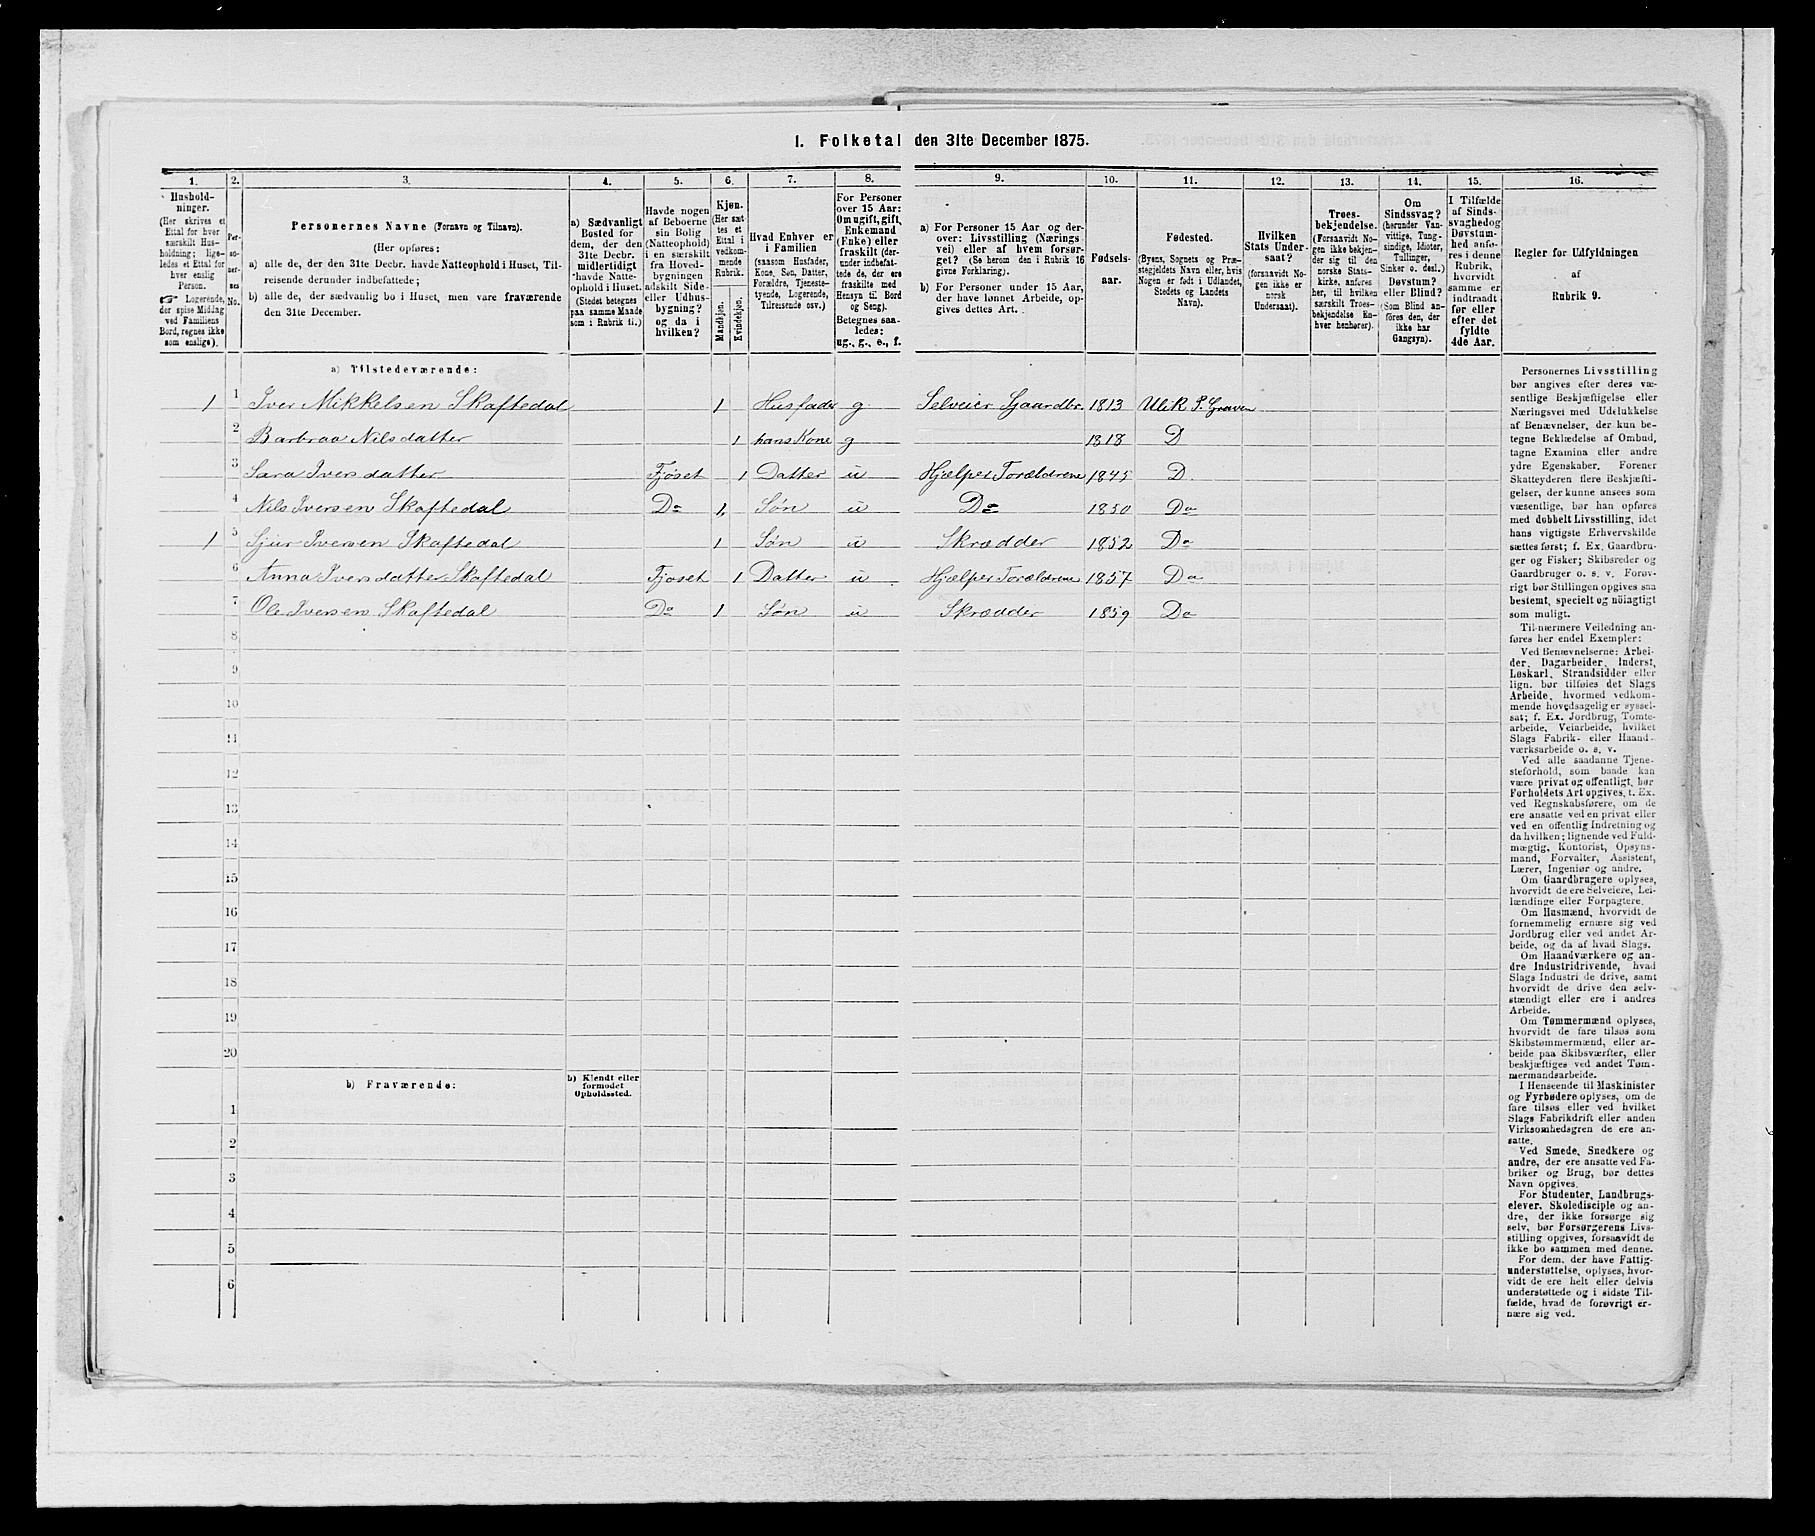 I. Folketal den 31te December 1875.
1. 2. 3. 4. 5. 6. 7. 8. 9. 10. 11. 12. 13. 14. 15. 16.
Husholdninger. (Her skrives et Ettal for hver særskilt Husholdning; ligeledes et Ettal for hver enslig Person.
☞ Logerende, der spise Middag ved Familiens Bord, regnes ikke som enslige).
Personernes No.
Personernes Navne (Fornavn og Tilnavn).
(Her opføres:
a) alle de, der den 31te Decbr. havde Natteophold i Huset, Tilreisende derunder indbefattede;
b) alle de, der sædvanlig bo i Huset, men vare fraværende den 31te December.
a) Sædvanligt Bosted for dem, der den 31te Decbr. midlertidigt havde Natteophold i Huset. (Stedet betegnes paa samme Maade som i Rubrik 11.)
Havde nogen af Beboerne sin Bolig (Natteophold) i en særskilt fra Hovedbygningen adskilt Side- eller Udhusbygning? og da i hvilken?
Kjøn. (Her sættes et Ettal i vedkommende Rubrik.
Mandkjøn. Kvindekjøn.
Hvad Enhver er i Familien (saasom Husfader, Kone, Søn, Datter, Forældre, Tjenestetyende, Logerende, Tilreisende osv.)
For Personer over 15 Aar: Om ugift, gift, Enkemand (Enke) eller fraskilt (derunder indbefattede de, der ere fraskilte med Hensyn til Bord og Seng). Betegnes saaledes: ug., g., e., f.
a) For Personer 15 Aar og derover: Livsstilling (Næringsvei) eller af hvem forsørget? (Se herom den i Rubrik 16 givne Forklaring).
b) For Personer under 15 Aar, der have lønnet Arbeide, opgives dettes Art.
Fødselsaar.
Fødested. (Byens, Sognets og Præstegjeldets Navn eller, hvis Nogen er født i Udlandet, Stedets og Landets Navn).
Hvilken Stats Undersaat? (forsaavidt Nogen ikke er norsk Undersaat).
Troesbekjendelse. (Forsaavidt Nogen ikke bekjender sig til den norske Statskirke, anføres her, til hvilken særskilt Troesbekjendelse Enhver henhører).
Om Sindssvag? (herunder Vanvittige, Tungsindige, Idioter, Tullinger, Sinker o. desl.) Døvstum? eller Blind? (Som Blind anføres den, der ikke har Gangsyn).
I Tilfælde af Sindssvaghed og Døvstumhed anføres i denne Rubrik, hvorvidt samme er indtraadt før eller efter det fyldte 4de Aar.
Regler for Udfyldningen af Rubrik 9.
a) Tilstedeværende:
1 1 Iver Mikkelsen Skaftedal 1 Husfader g Selveier Gaardbr. 1813 Ulvik P. Graven
2 Barbraa Nilsdatter 1 hans Kone g 1818 D
3 Sara Iversdatter Fjøset 1 Datter u Hjælper Forældrene 1845 D.
4 Nils Iversen Skaftedal Do 1 Søn u Do 1850 Do
1 5 Sjur Iversen Skaftedal 1 Søn u Skrædder 1852 Do
6 Anna Iversdatter Skaftedal Fjøset 1 Datter u Hjælper Forældrene 1857 Do
7 Ole Iversen Skaftedal Do 1 Søn u Skrædder 1859 Do
8
9
10
11
12
13
14
15
16
17
18
19
20
b) Fraværende:
b) Kjendt eller formodet Opholdssted.
1
2
3
4
5
6
Personernes Livsstilling
bør angives efter deres væ-
sentlige Beskjæftigelse eller
Næringsvei med Udelukkelse
af Benævnelser, der kun be-
tegne Beklædelse af Ombud,
tagne Examina eller andre
ydre Egenskaber. Forener
Skatteyderen flere Beskjæfti-
gelser, der kunne ansees som
væsentlige, bør han opføres
med dobbelt Livsstilling, idet
hans vigtigste Erhvervskilde
sættes først; f. Ex. Gaardbru-
ger og Fisker; Skibsreder og
Gaardbruger o. s. v. Forøv-
rigt bør Stillingen opgives saa
bestemt, specielt og nøiagtigt
som muligt.
Til nærmere Veiledning an-
føres her endel Exempler:
Ved Benævnelserne: Arbei-
der, Dagarbeider, Inderst,
Løskarl, Strandsidder eller
lign. bør tilføies det Slags
Arbeide, hvormed vedkom-
mende hovedsagelig er syssel-
sat; f. Ex. Jordbrug, Tomte-
arbeide, Veiarbeide, hvilket
Slags Fabrik- eller Haand-
værksarbeide o. s. v.
Ved alle saadanne Tjene-
steforhold, som baade kan
være privat og offentligt, bør
Forholdets Art opgives, f. Ex.
ved Regnskabsførere, om de
ere ansatte ved en privat eller
ved en offentlig Indretning og
da hvilken; lignende ved Fuld-
mægtig, Kontorist, Opsyns-
mand, Forvalter, Assistent,
Lærer, Ingeniør og andre.
Om Gaardbrugere oplyses,
hvorvidt de ere Selveiere, Lei-
lændinge eller Forpagtere.
Om Husmænd, hvorvidt de
fornemmelig ernære sig ved
Jordbrug eller ved andet Ar-
beide, og da af hvad Slags.
Om Haandværkere og an-
dre Industridrivende, hvad
Slags Industri de drive, samt
hvorvidt de drive den selv-
stændigt eller ere i andres
Arbeide.
Om Tømmermænd oplyses,
hvorvidt de fare tilsøs som
Skibstømmermænd, eller ar-
beide paa Skibsværfter, eller
beskjæftiges ved andet Tøm-
mermandsarbeide.
I Henseende til Maskinister
og Fyrbødere oplyses, om de
fare tilsøs eller ved hvilket
Slags Fabrikdrift eller anden
Virksomhedsgren de ere an-
satte.
Ved Smede, Snedkere og
andre, der ere ansatte ved Fa-
briker og Brug, bør dettes
Navn opgives.
For Studenter, Landbrugs-
elever, Skoledisciple og an-
dre, der ikke forsørge sig
selv, bør Forsørgerens Livs-
stilling opgives, forsaavidt de
ikke bo sammen med denne.
For dem, der have Fattig-
understøttelse, oplyses, hvor-
vidt de ere helt eller delvis
understøttede og i sidste Til-
fælde, hvad de forøvrigt er-
nære sig ved.